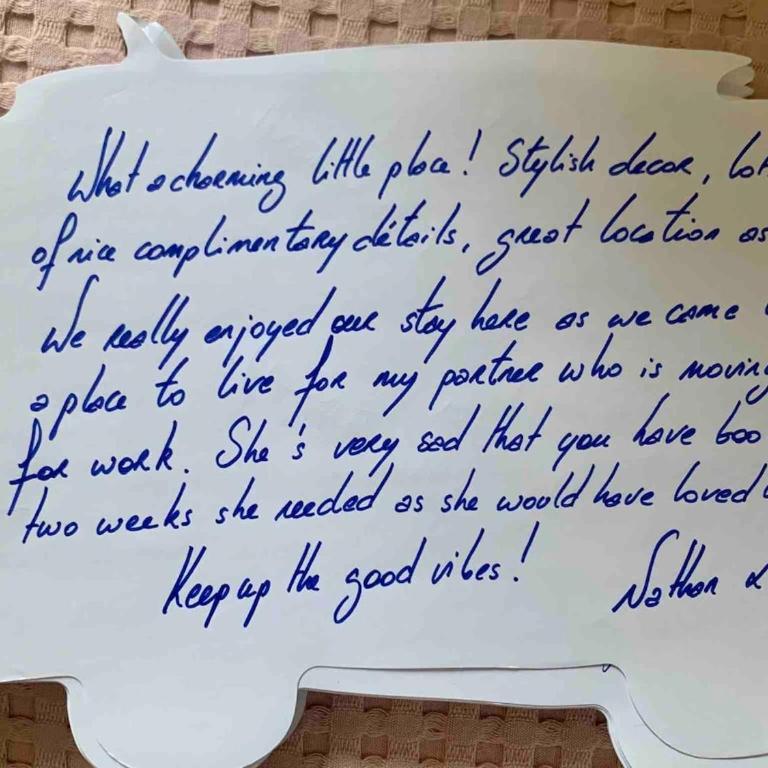 What a charming little place! Stylish decor, lot
of nice complimentary détails, great location as
We really enjoyed our stay here as we came
a place to live for my partner who is moving
for work. She's very sad that you have boo
two weeks she needed as she would have loved
Keep up the good vibes! Nathan &